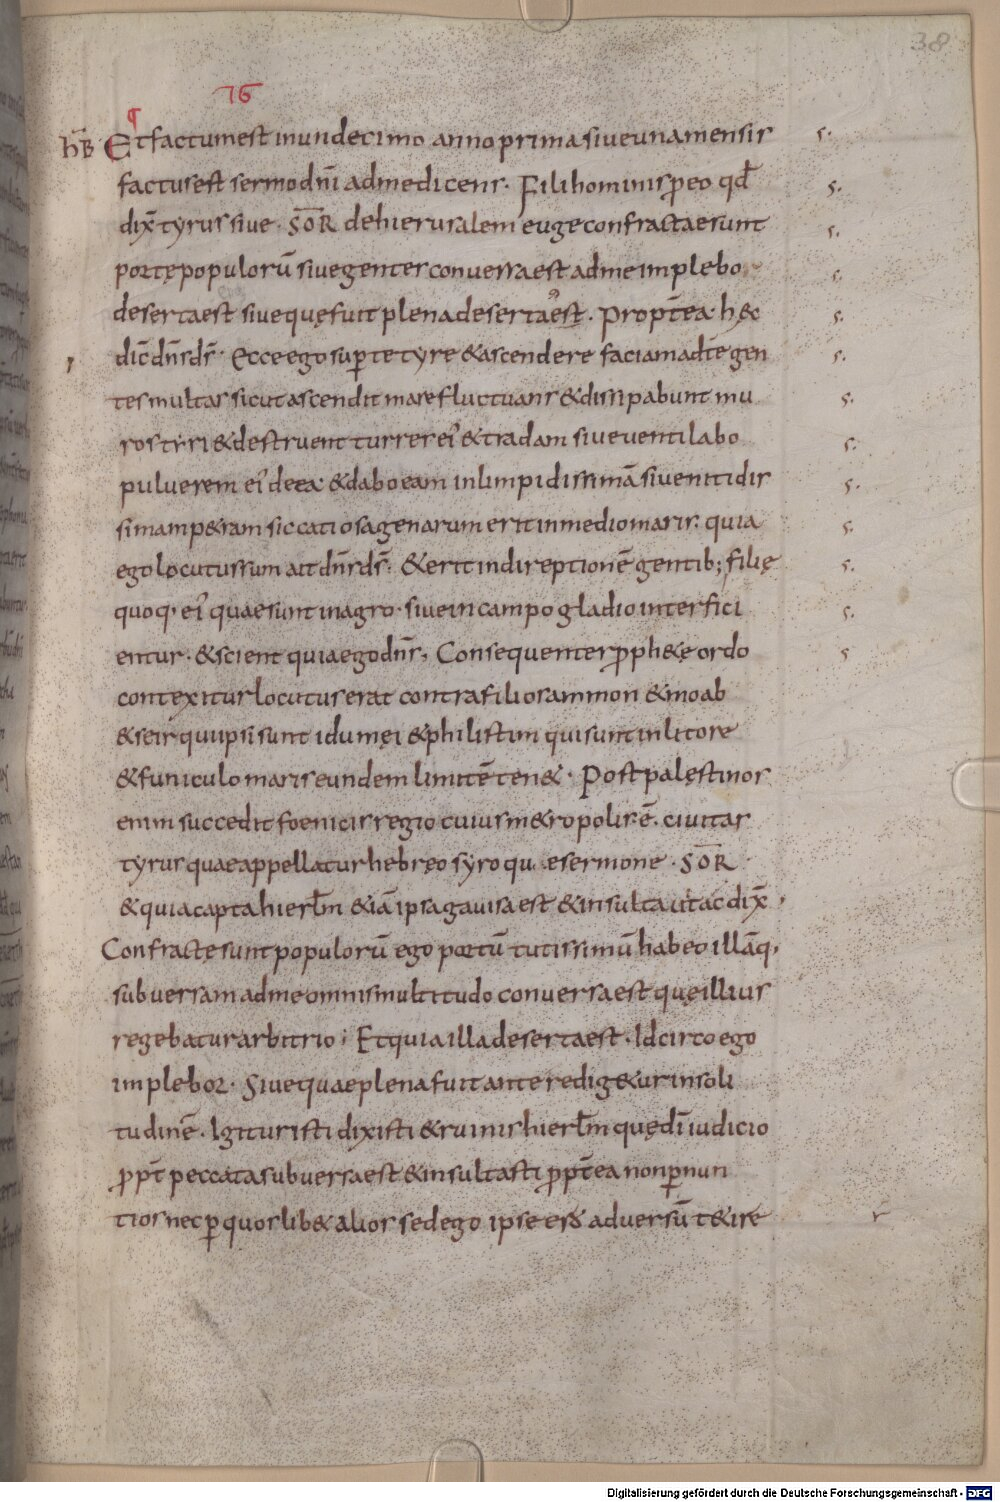 38
76
hB Et factum est inundecimo anno prima siue unamensis s.
factus est sermo dñi ad me dicens. Fili hominis ꝓeo qđ s.
dix̄ tyrus siue. SŌR de hierusalem euge confractae sunt s.
portę populorū siue gentes conuersa est ad me implebo s.
deserta est siue quę fuit plena deserta est. Propt̄ea hęc s.
dic̄ dn̄s ds̄. Ecce ego suꝑ te tyre & ascendere faciam ad te gen s.
tes multas sicut ascendit mare fluctuans & dissipabunt mu s.
ros tyri & destruent turres ei' & tradam siue uentilabo s.
puluerem ei' de ea & dabo eam inlimpidissimā siue nitidis s.
simam p&ram siccatio sagenarum erit inmedio maris. quia s.
ego locutus sum ait dn̄s ds̄. & erit indireptionē gentib; filię s.
quoq. ei' quae sunt inagro. siue incampo gladio interfici s.
entur. & scient quia ego dn̄s. Consequenter ꝓph&ę ordo s
contexitur locutus erat contra filios ammon & moab
& seir qui ipsi sunt idumęi & philistim qui sunt inlitore
& funiculo maris eundem limitē ten&. Post palęstinos
enim succedit foenicis regio cuius m&ropolis ē. ciuitas
tyrus quae appellatur hebręo syroqu esermone. SŌR
& quia capta hierl̄m & iā ipsa gauisa est & insultauit ac dix̄,
Confracte sunt populorū ego portū tutissimū habeo illāq.
subuersam ad me omnis multitudo conuersa est quę illius
regebatur arbitrio; Et quia illa deserta est. Idcirco ego
implebor. Siue quae plena fuit ante redig&ur insoli
tudinē. Igitur isti dixisti & ruinis hierl̄m quę dī iudicio
ꝓpt̄ peccata subuersa est & insultasti ꝓpt̄ea non ꝑ nun
tios nec ꝑ quoslib& alios sed ego ipse ero aduersū t& ire r
Digitalisierung gefördert durch die Deutsche Forschungsgemeinschaft - DFG